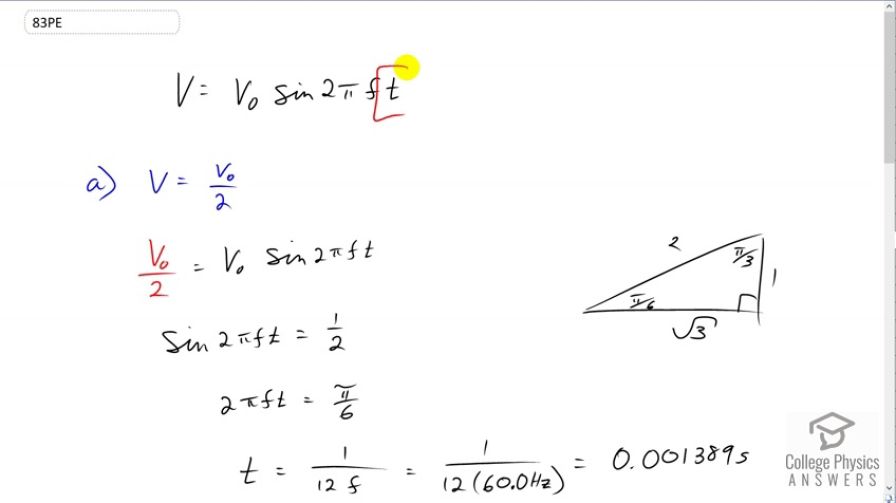 83PE
V = V₀ sin 2π f t
a) V = V₀/2
V₀/2 = V₀ sin 2π f t
2
π/3
1
π/6
√3
sin 2π f t = 1/2
2π f t = π/6
t = 1/12 f = 1/12 (60.0 Hz) = 0.001389 s
College Physics
ANSWERS